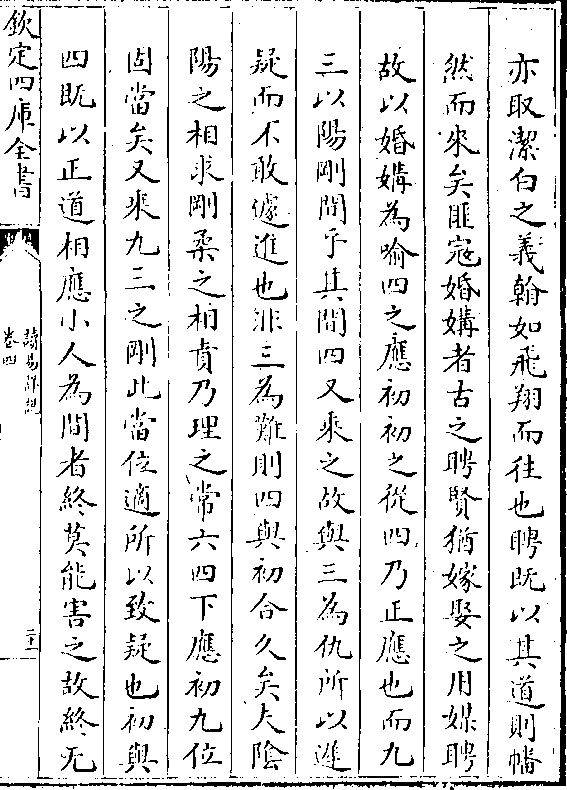 亦取潔白之義翰如飛翔而往也聘既以其道則幡
然而來矣匪寇婚媾者古之聘賢猶嫁娶之用媒聘
故以婚媾為喻四之應初初之從四乃正應也而九
三以陽剛間乎其間四又乘之故與三為仇所以遲
疑而不敢遽進也非三為難則四與初合久矣夫陰
陽之相求剛柔之相賁乃理之常六四下應初九位
固當矣又乘九三之剛此當位適所以致疑也初與
四既以正道相應小人為間者終莫能害之故終无
欽定四庫全書
讀易詳說
卷四